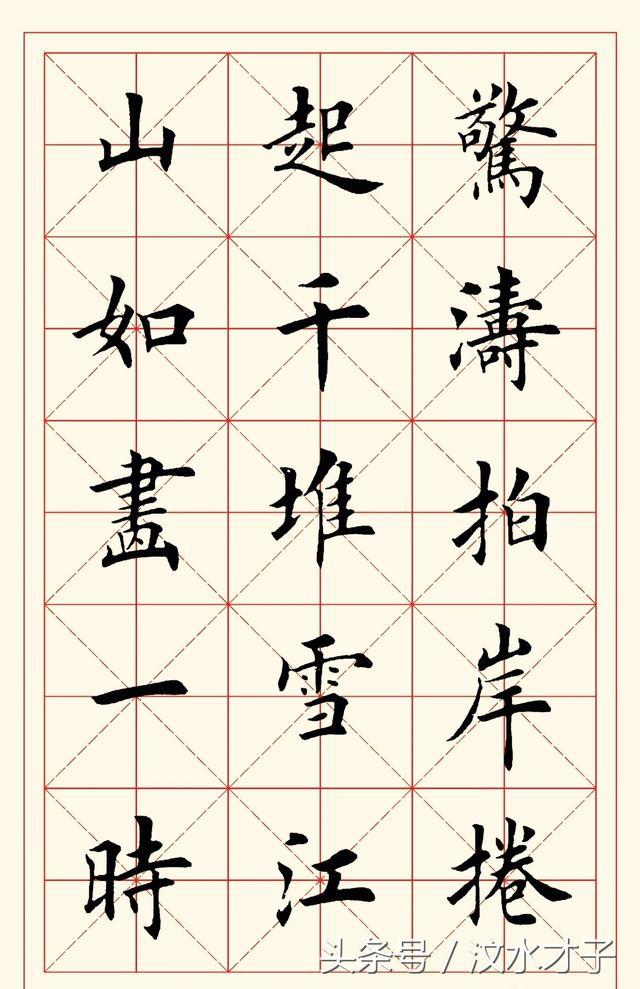 驚濤拍岸捲
起千堆雪江
山如畫一時
头条号 / 汶水才子